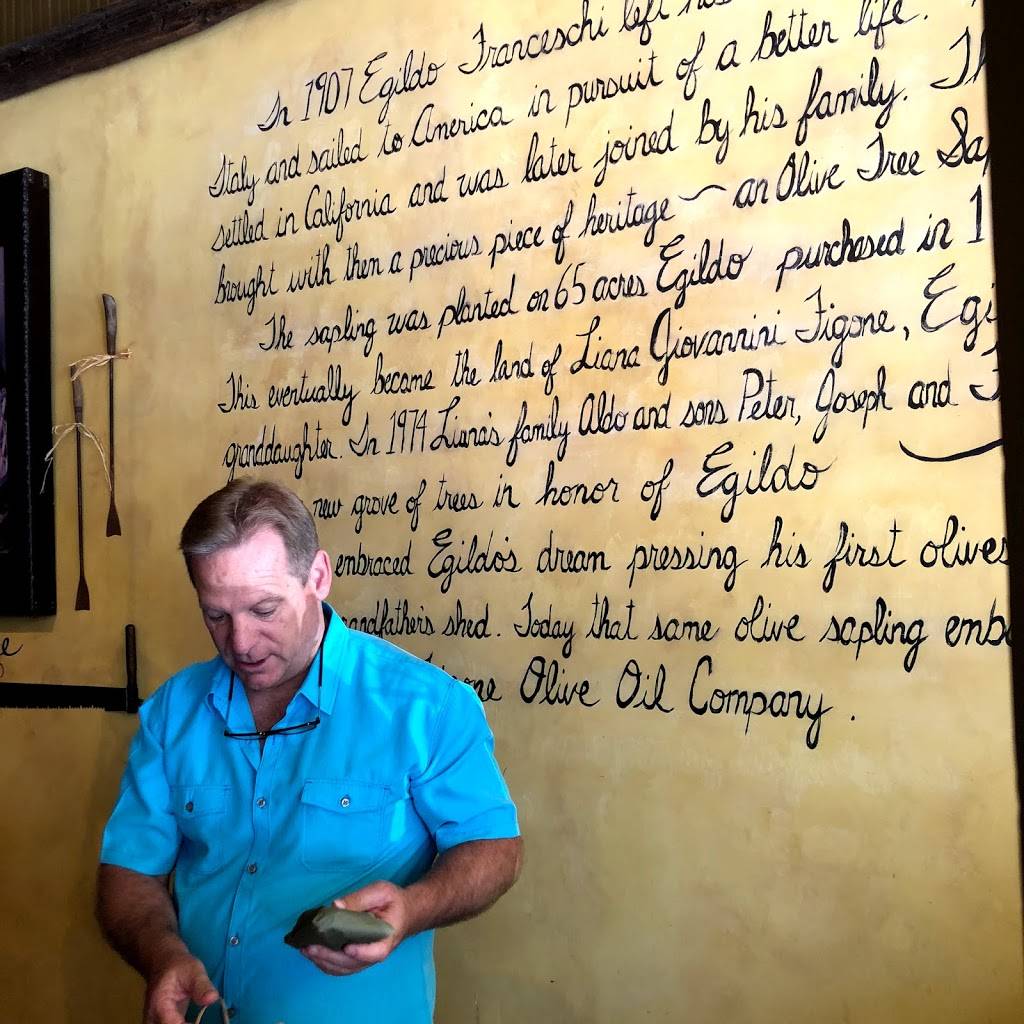 In 1907 Egildo Franceschi left
Italy and sailed to America in pursuit of a better life.
settled in California and was later joined by his family.
brought with then a precious piece of heritage ~ an Olive Tree
The sapling was planted on 65 acres Egildo purchased in
This eventually became the land of Liana Giovannini Figone,
granddaughter. In 1974 Liana's family Aldo and sons Peter, Joseph and
new grove of trees in honor of Egildo
embraced Egildo's dream pressing his first olives
shed. Today that same olive sapling
Olive Oil Company.